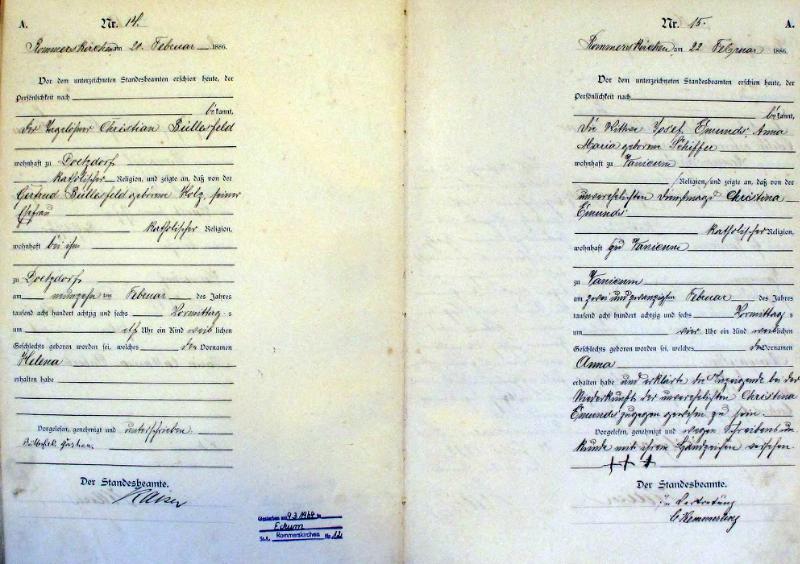 A. Nr. 14.
Rommerskirchen am 20. Februar 1886.
Vor dem unterzeichneten Standesbeamten erschien heute, der
Persönlichkeit nach
bekannt,
Der Tagelöhner Christian Büllesfeld
wohnhaft zu Deelen
katholischer Religion, und zeigte an, daß von der
Gertrud Büllesfeld geborene Holz, seiner
Ehefrau
katholischer Religion,
wohnhaft bei ihm
zu
am neunzehn ten Februar des Jahres
tausend acht hundert achtzig und sechs Vormittags
um elf Uhr ein Kind weiblichen
Geschlechts geboren worden sei, welches den Vornamen
Helena
erhalten habe
Vorgelesen, genehmigt und unterschrieben
Der Standesbeamte.
Gestorben am 9.3.1964 in
Eckum
St.A. Rommerskirchen Nr. 12
Nr. 15. A.
Rommerskirchen am 22 Februar 1886.
Vor dem unterzeichneten Standesbeamten erschien heute, der
Persönlichkeit nach
bekannt,
Die Wittwe Josef Emunds, Anna
Maria geborene Schiffer
wohnhaft zu Vanikum
Religion, und zeigte an, daß von der
unverehelichten Dienstmagd Christina
Emunds
katholischer Religion,
wohnhaft zu Vanikum
zu Vanikum
am zwei und zwanzigsten Februar des Jahres
tausend acht hundert achtzig und sechs Vormittags
um vier Uhr ein Kind weiblichen
Geschlechts geboren worden sei, welches den Vornamen
Anna
erhalten habe und erklärte die Anzeigende bei der
Niederkunft der unverehelichten Christina
Emunds zugegen gewesen zu sein.
Vorgelesen, genehmigt und wegen Schreibensun-
kunde mit ihrem Handzeichen versehen
+++
Der Standesbeamte.
In Vertretung